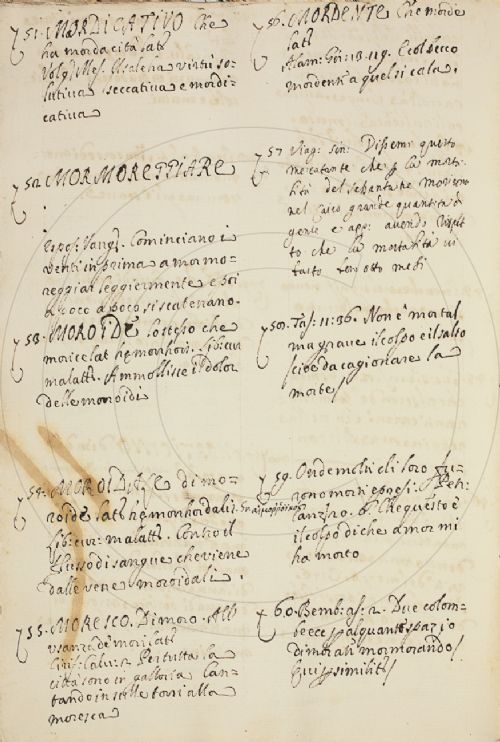 51. MORDICATIVO Che
ha mordacità. lat.
Volg: Mes. Usaleha virtù so-
lutiva seccativa e mordi-
cativa
52. MORMOREGGIARE
Espos: Vang: Cominciano i
denti in prima a mormo-
reggiar leggiermente e poi
a poco a poco si scatenano.
53. MOROIDE lo stesso che
morice lat. hemorrhois. Lib: cur:
malatt. Ammollisce il dolor
delle moroidi
54. MOROIDALE di mo-
roide lat. hemorrhoidalis
Lib: cur: malatt. Contro il
flusso di sangue che viene
dalle vene moroidali.
55. MORESCO. Di moro. All'
usanza de mori. lat.
Per tutta la
città sono in galloria
tando in su le torri alla
moresca
56. MORDENTE Che morde
lat.
Alam: Gir: 13. 119. E col becco
mordente a quel si cala.
57. Viag: Sin: Dissemi questo
mercatante che p la morta-
lità del settantatre morirono
nel Cairo grande quantità di
gente e app: avendo rispet-
to che la mortalità vi
fusse sette otto mesi
58. Tas: 11. 36. Non è mortal
ma grave il colpo e il salto
cioè da cagionare la
morte
59. Onde molti di loro fu-
rono morti e presi. Petr:
canz: 10. 6. Che questo è
il colpo di che amor mi
ha morto
60. Bemb: as: 2. Due colom-
be ecc. p alquanto spazio
dimorate mormorando